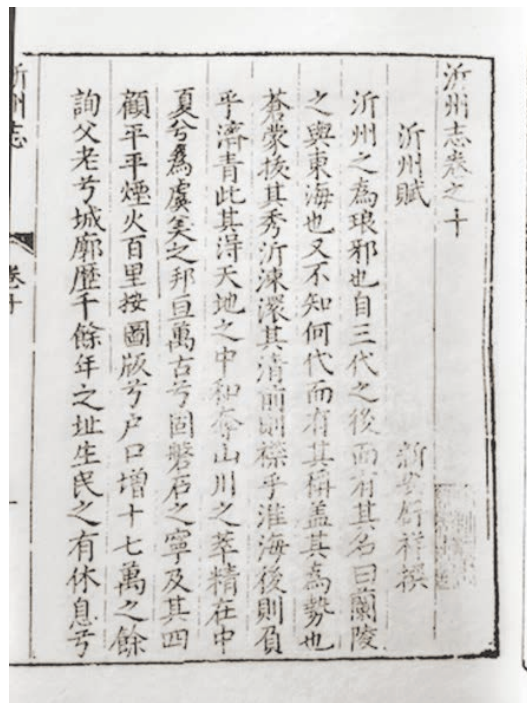 沂州志卷之十
沂州賦
舒祥撰
沂州之為琅邪也自三代之後而有其名曰蘭陵
之與東海也又不知何代而有其稱盖其為勢也
蒼蒙拔其秀沂涑瀠其清前則襟乎淮海後則負
乎濟青此其淂天地之中和夲山川之萃精在中
夏兮為虞芮之邦亘萬古兮固磐石之寧及其四
顧平平煙火百里按圖版兮户口增十七萬之餘
詢父老兮城廓歷千餘年之址生民之有休息兮
沂州志
卷十